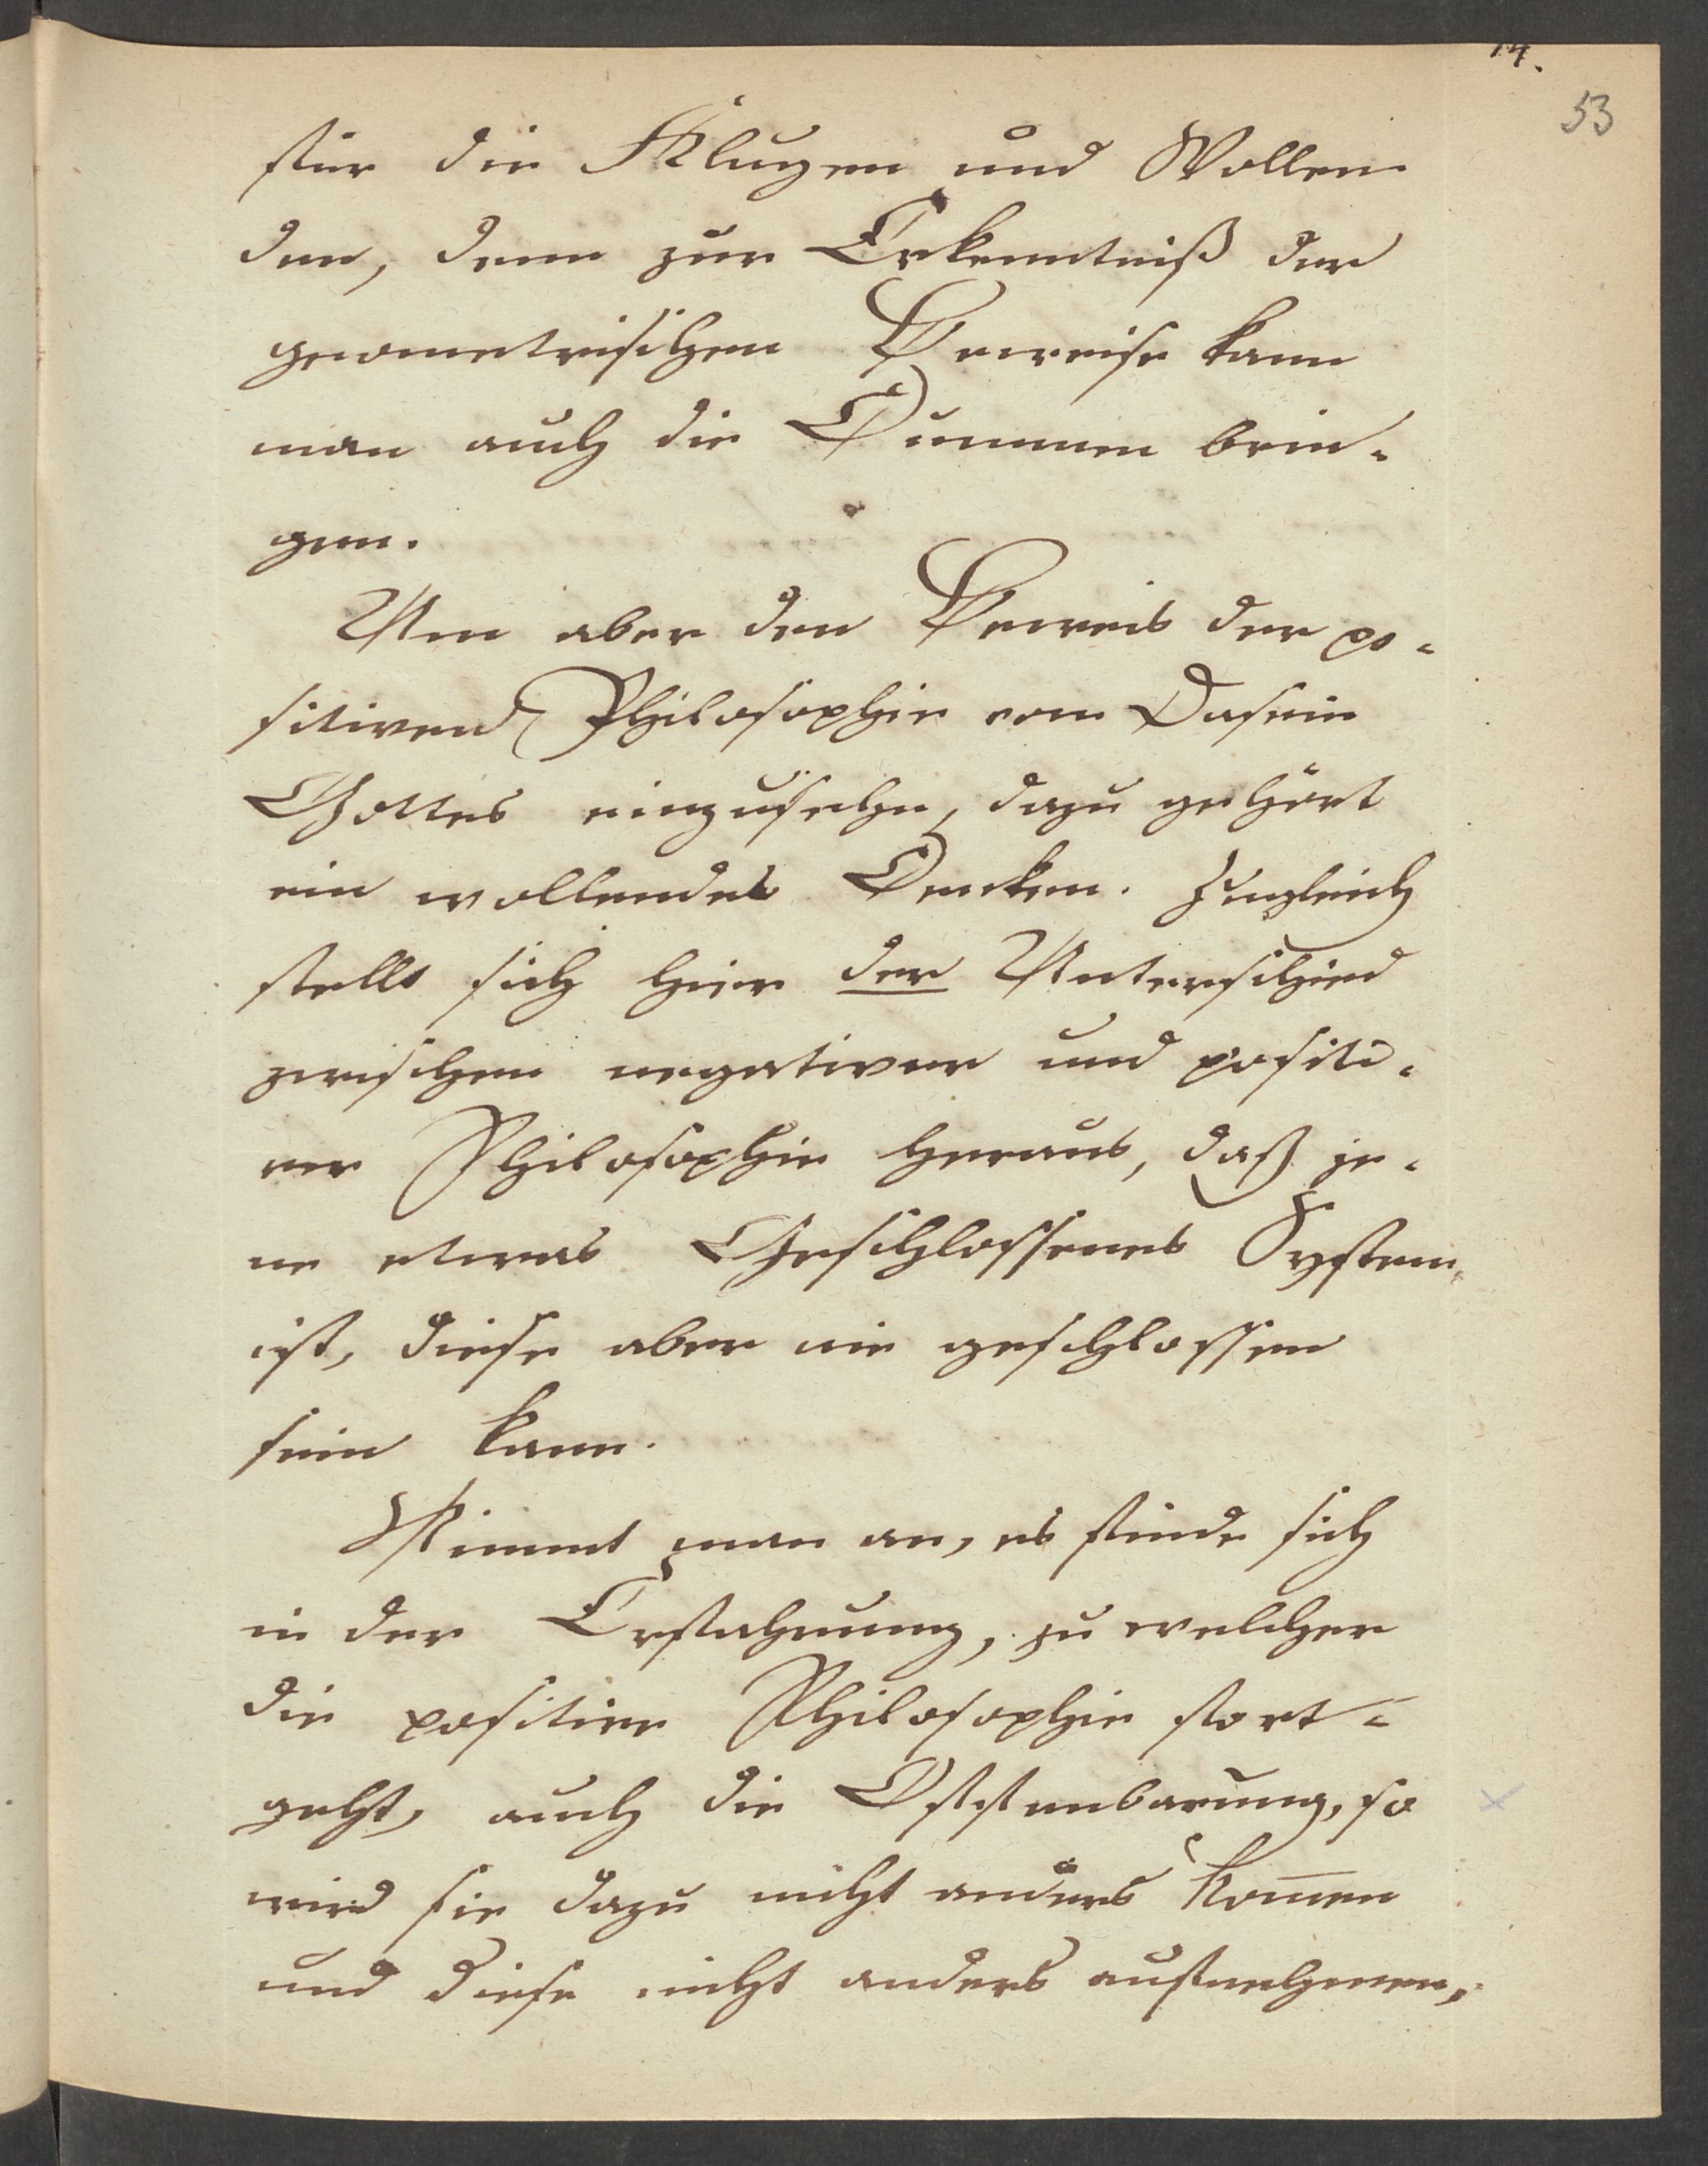 14.
53
für die Klugen und Wollen
den, denn zur Erkenntniß der
geometrischen Beweise kann
man auch die Dummen brin-
gen.
Um aber den Beweis der po-
sitiven Philosophie vom Dasein
Gottes einzusehn, dazu gehört
ein wollendes Denken. Zugleich
stellt sich hier der Unterschied
zwischen negativer und positi-
ver Philosophie heraus, daß je-
ne etwas Geschlossenes System
ist, diese aber nie geschlossen
sein kann.
Nimmt man an, es finde sich
in der Erfahrung, zu welcher
die positive Philosophie fort-
geht, auch die Offenbarung, so
wird sie dazu nicht anders kom̅en
und diese nicht anders aufnehmen,